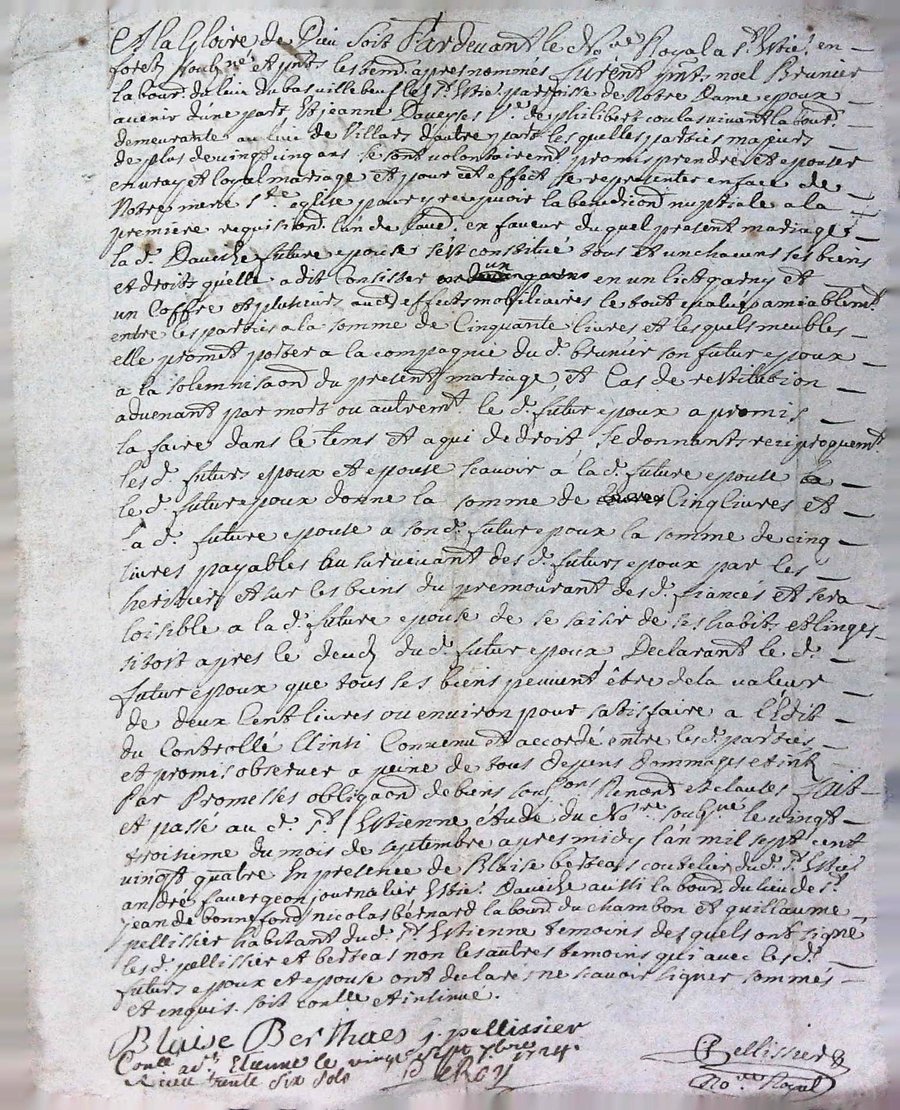 A la Gloire de Dieu soit Pardevant le No.re Royal a St Estie. en
forets soubz.né et p.nts les tem. apres nommés furent p.nts noel Brunier
la bour. du lieu du bas villebeuf les St Estie. parroisse de Notre Dame epoux
avenir d'une part Et jeanne Daveyses V.e de philibert coulas vivant la bour.
demeurante au lieu de Villars d'autre part les quelles parties majeurs
de plus de vingt cinq ans se sont volontairem.t promis prendre et epouser
en vray et loyal mariage et pour cet effect se representer en face de
Notre mere s.te eglise pour y recepvoir la benediction nuptiale a la
premiere requision. l'un de l'autre en faveur du quel present mariage
la d. Daveise future epouse s'est constitué tous et un chacuns ses biens
et droits qu'elle a dit consister un en un lict garny et
un Coffre et plusieurs aud. effects mobiliaires le tout evalué amiablem.t
entre les parties a la somme de Cinquante livres et les quels meubles
elle promet porter a la compagnie du d. brunier son futur epoux
a la solemnisaon du present mariage, et Cas de restitution
advenant par mort ou autrem.t le d. futur epoux a promis
la faire dans le tems et a qui de droit se donnants reciproquem.t
les d. futurs epoux et epouse scavoir à la d. future epouse
le d. futur epoux donne la somme de Cinq livres et
la d. future epouse a son d. futur epoux la somme de cinq
livres payables au survivant des d. futurs epoux par les
heritiers et sur les biens du premourant des d. fiancés et sera
loisible a la d. future epouse de se saisir de ses habits et linges
sitost apres le deuds du d. futur epoux Declarant le d.
futur epoux que tous ses biens peuvent être de la valeur
de deux Cent livres ou environ pour satisfaire a l'Edit
du Controllé Ainsi Convenu et accordé entre les d. parties
et promis observer a peine de tous depens dommages et int.
Par Promesses obligaon de biens soub.on Renon.t et clauses fait
et passé au d. St Estienne etude du No.re soub.né le vingt
troisieme du mois de septembre apres midy l'an mil sept cent
vingt quatre En presence de Blaise berteas coutelier du d. St Estie.
andré favergeon journalier Estie. Daveise aussi la bour. du lieu de St
jean de bonnefond nicolas bernard la bour. du chambon et guillaume
pellissier habitant du d. St Estienne temoins des quels ont signé
les d. pellissier et berteas non les autres temoins qui avec les d.
futurs epoux et epouse ont declaré ne scavoir signer sommés
et enquis. soit conllé et intimé.
Blaise Berthaes g. pellissier
Conllé a St Etienne le vingt sept 7bre 1724
Receu trente six sols LeRoy
Pellissier
No.re Royal